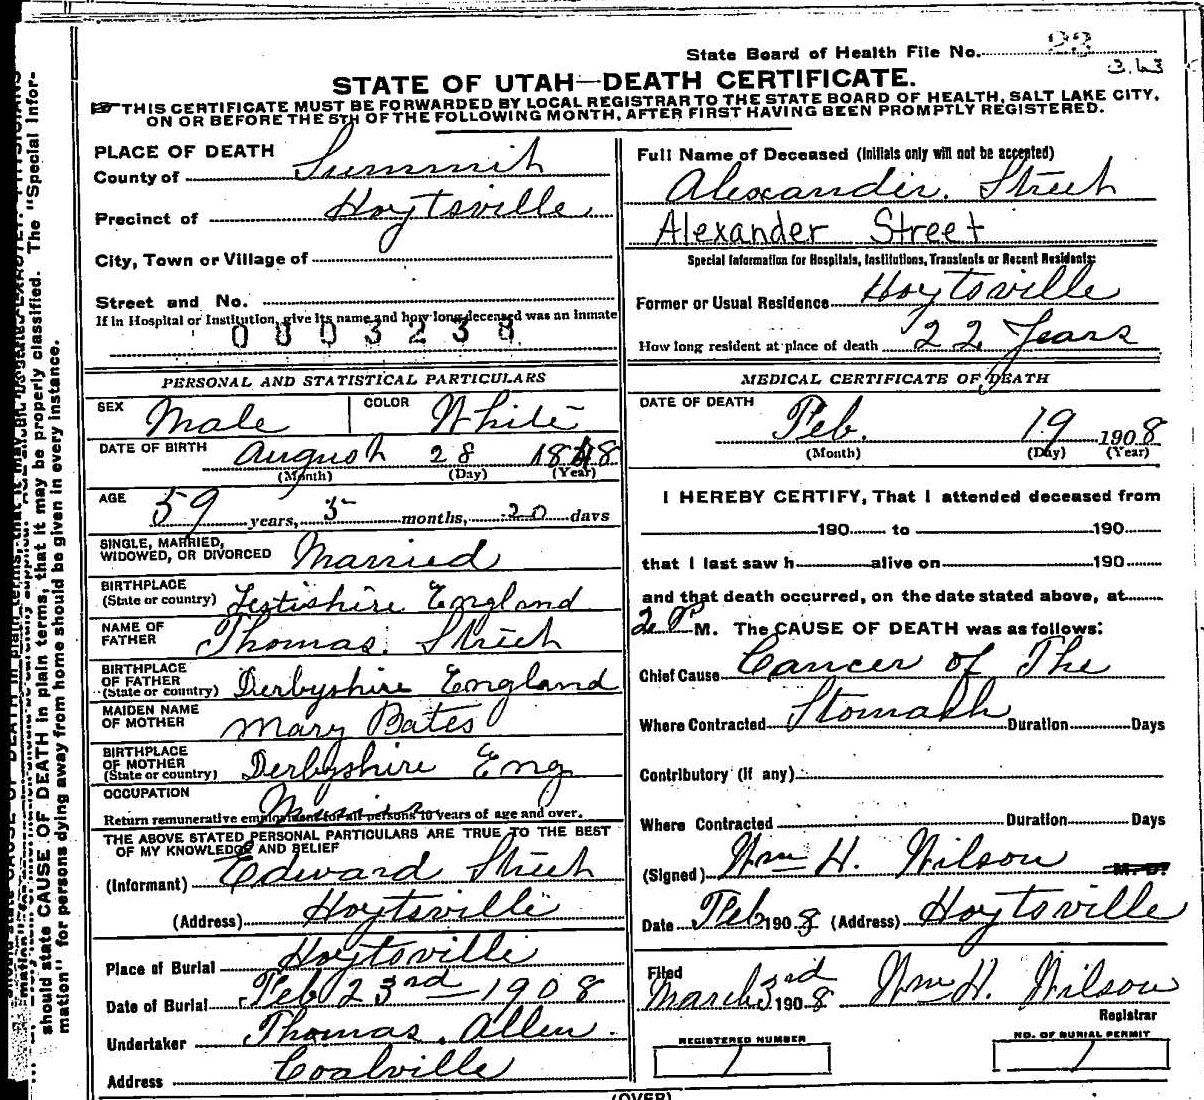 State Board of Health File No. 23
343
STATE OF UTAH—DEATH CERTIFICATE.
THIS CERTIFICATE MUST BE FORWARDED BY LOCAL REGISTRAR TO THE STATE BOARD OF HEALTH, SALT LAKE CITY,
ON OR BEFORE THE 5TH OF THE FOLLOWING MONTH, AFTER FIRST HAVING BEEN PROMPTLY REGISTERED.
PLACE OF DEATH
County of Summit
Precinct of Hoytsville
City, Town or Village of
Street and No.
If in Hospital or Institution, give its name and how long deceased was an inmate
0803238
PERSONAL AND STATISTICAL PARTICULARS
SEX Male COLOR White
DATE OF BIRTH August 28 1848
(Month) (Day) (Year)
AGE 59 years, 5 months, 20 days
SINGLE, MARRIED,
WIDOWED, OR DIVORCED Married
BIRTHPLACE
(State or country) England
NAME OF
FATHER Thomas Street
BIRTHPLACE
OF FATHER
(State or country) Derbyshire England
MAIDEN NAME
OF MOTHER Mary Bates
BIRTHPLACE
OF MOTHER
(State or country) Derbyshire Eng
OCCUPATION
Return remunerative employment for all persons 10 years of age and over.
THE ABOVE STATED PERSONAL PARTICULARS ARE TRUE TO THE BEST
OF MY KNOWLEDGE AND BELIEF
(Informant) Edward Street
(Address) Hoytsville
Place of Burial Hoytsville
Date of Burial Feb 23rd 1908
Undertaker Thomas Allen
Address Coalville
Full Name of Deceased (Initials only will not be accepted)
Alexander. Street
Alexander Street
Special Information for Hospitals, Institutions, Transients or Recent Residents:
Former or Usual Residence Hoytsville
How long resident at place of death 22 Years
MEDICAL CERTIFICATE OF DEATH
DATE OF DEATH
Feb. 19 1908
(Month) (Day) (Year)
I HEREBY CERTIFY, That I attended deceased from
190 to 190
that I last saw h alive on 190
and that death occurred, on the date stated above, at
2 P M. The CAUSE OF DEATH was as follows:
Chief Cause Cancer of The
Stomach
Where Contracted Duration Days
Contributory (if any)
Where Contracted Duration Days
(Signed) Wm H. Wilson M. D.
Date Feb 1908 (Address) Hoytsville
Filed
March 3rd 1908 Wm H. Wilson
Registrar
REGISTERED NUMBER
1
NO. OF BURIAL PERMIT
1
(OVER)
should state CAUSE OF DEATH in plain terms, that it may be properly classified. The "Special Infor-
mation" for persons dying away from home should be given in every instance.